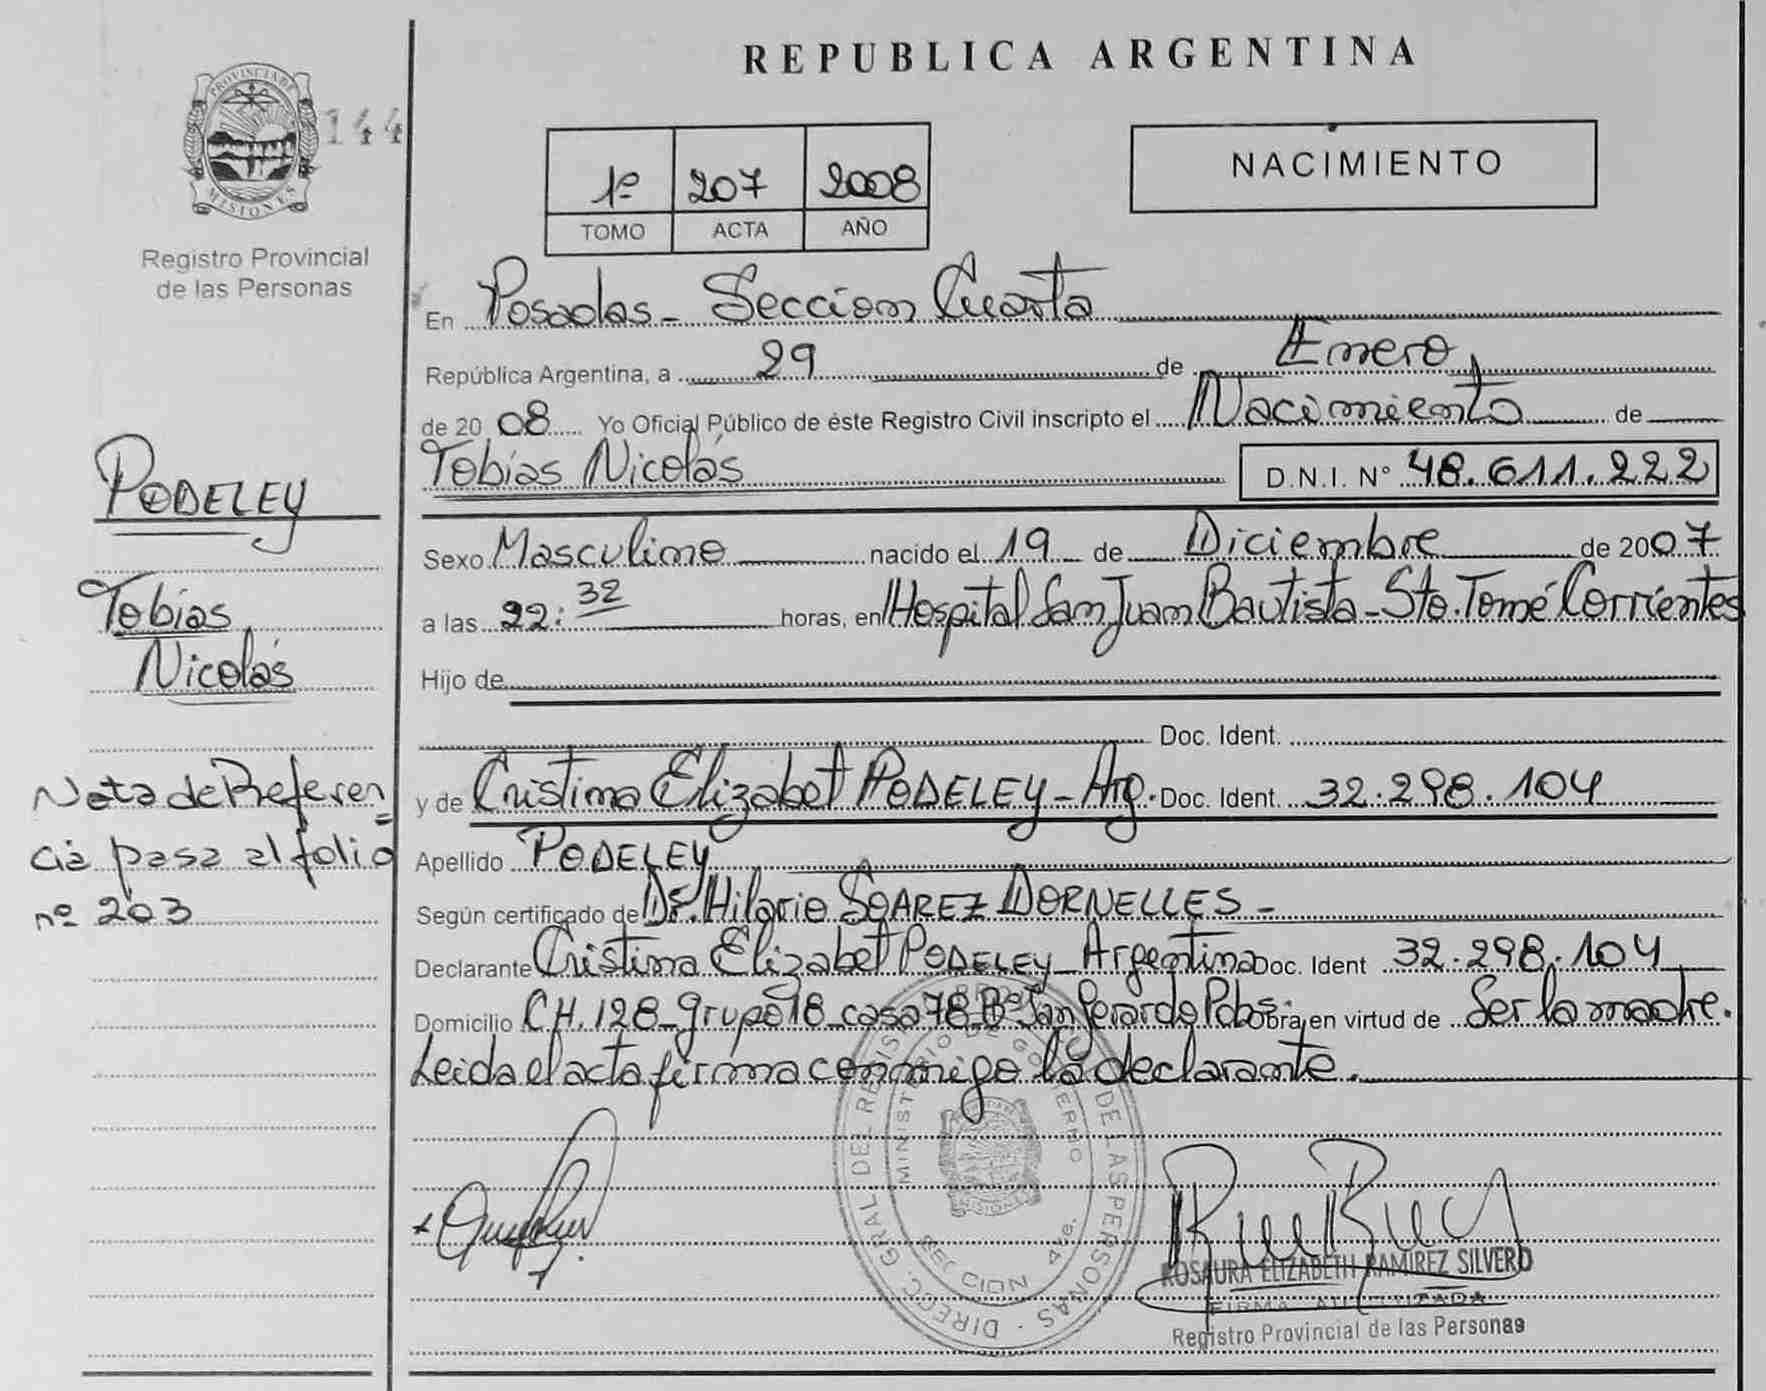 REPUBLICA ARGENTINA
PROVINCIA DE
MISIONES
144
Registro Provincial
de las Personas
1º 207 2008
TOMO ACTA AÑO
NACIMIENTO
En Posadas - Sección Cuarta
República Argentina, a 29 de Enero,
de 20 08 Yo Oficial Público de éste Registro Civil inscripto el Nacimiento de
Tobías Nicolás D.N.I. Nº 48.611.222
Sexo Masculino nacido el 19 de Diciembre de 2007
a las 22:32 horas, en Hospital San Juan Bautista - Sto. Tomé Corrientes
Hijo de
Doc. Ident.
y de Cristina Elizabet PODELEY - Arg. Doc. Ident. 32.298.104
Apellido PODELEY
Según certificado de Dr. Hilario SOAREZ DORNELLES -
Declarante Cristina Elizabet PODELEY - Argentina Doc. Ident 32.298.104
Domicilio CH. 128 - grupo 18 - casa 78 Bº San Gerardo Pdas. Obra en virtud de Ser la madre.
Leida el acta firma conmigo la declarante.
PODELEY
Tobías
Nicolás
Nota de Referen
=
cia pasa al folio
nº 203
DIRECC. GRAL DEL REGIS DE LAS PERSONAS
MINISTERIO DE GOBIERNO
SECCION 4ta.
ROSAURA ELIZABETH RAMIREZ SILVERO
FIRMA AUTORIZADA
Registro Provincial de las Personas